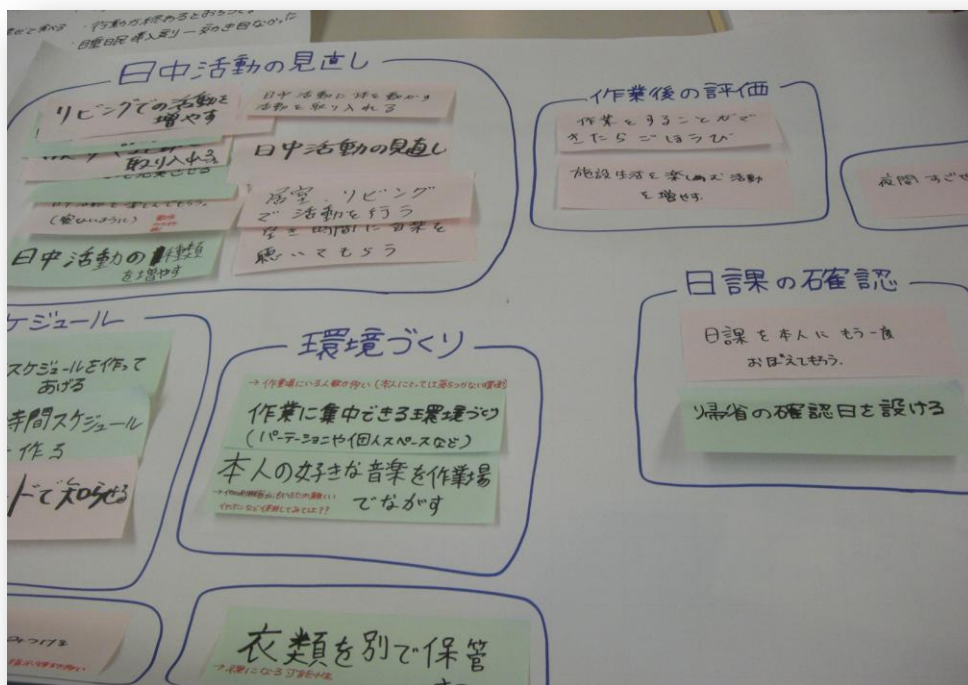 ・行動が終わるとおちつく。
日中活動の見直し
リビングでの活動を
増やす
日中活動に体を動かす
活動を取り入れる
取り入れる
日中活動の見直し
居室、リビング
で活動を行う
空き時間に音楽を
聴いてもらう
日中活動の種類
を増やす
作業後の評価
作業をすることがで
きたらごほうび
施設生活を楽しめる活動
を増やす。
夜間
日課の確認
日課を本人にもう一度
おぼえてもらう。
帰省の確認日を設ける
ケジュール
スケジュールを作って
あげる
時間スケジュール
作る
ードで知らせる
環境づくり
→作業場にいる人数が多い(本人にとっては落ちつかない環境)
作業に集中できる環境づくり
(パーテーションや個人スペースなど)
本人の好きな音楽を作業場
でながす
みつける
衣類を別で保管